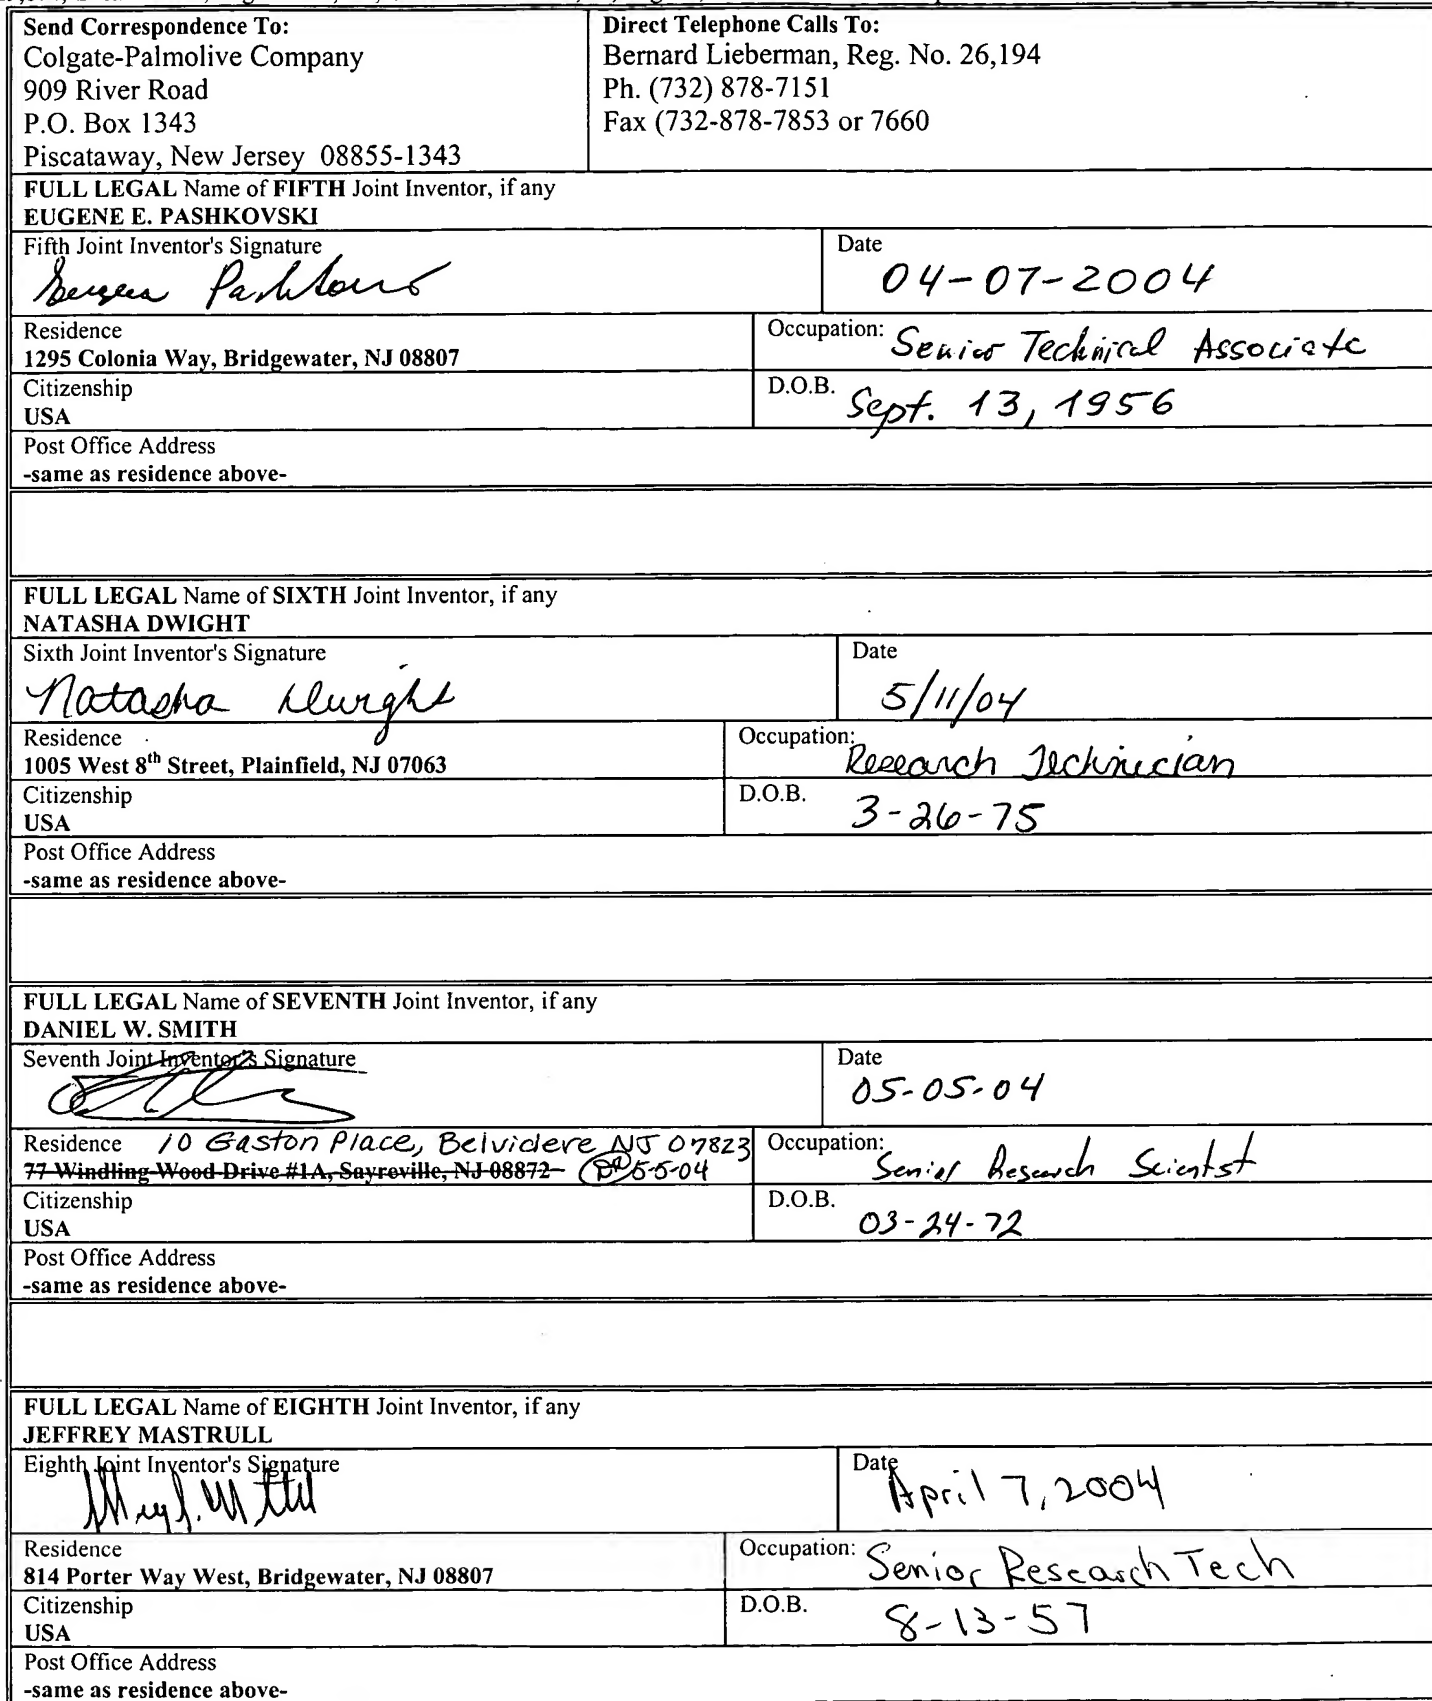 Send Correspondence To:
Colgate-Palmolive Company
909 River Road
P.O. Box 1343
Piscataway, New Jersey 08855-1343
Direct Telephone Calls To:
Bernard Lieberman, Reg. No. 26,194
Ph. (732) 878-7151
Fax (732-878-7853 or 7660
FULL LEGAL Name of FIFTH Joint Inventor, if any
EUGENE E. PASHKOVSKI
Fifth Joint Inventor's Signature
Date
04-07-2004
Residence
1295 Colonia Way, Bridgewater, NJ 08807
Occupation: Senior Technical Associate
Citizenship
USA
D.O.B. Sept. 13, 1956
Post Office Address
-same as residence above-
FULL LEGAL Name of SIXTH Joint Inventor, if any
NATASHA DWIGHT
Sixth Joint Inventor's Signature
Natasha Dwight
Date
5/11/04
Residence
1005 West 8th Street, Plainfield, NJ 07063
Occupation:
Research Technician
Citizenship
USA
D.O.B.
3-26-75
Post Office Address
-same as residence above-
FULL LEGAL Name of SEVENTH Joint Inventor, if any
DANIEL W. SMITH
Seventh Joint Inventor's Signature
Date
05-05-04
Residence 10 Gaston Place, Belvidere NJ 07823
77 Windling Wood Drive #1A, Sayreville, NJ 08872 5-5-04
Occupation:
Senior Research Scientst
Citizenship
USA
D.O.B.
03-24-72
Post Office Address
-same as residence above-
FULL LEGAL Name of EIGHTH Joint Inventor, if any
JEFFREY MASTRULL
Eighth Joint Inventor's Signature
Date
April 7, 2004
Residence
814 Porter Way West, Bridgewater, NJ 08807
Occupation: Senior Research Tech
Citizenship
USA
D.O.B.
8-13-57
Post Office Address
-same as residence above-